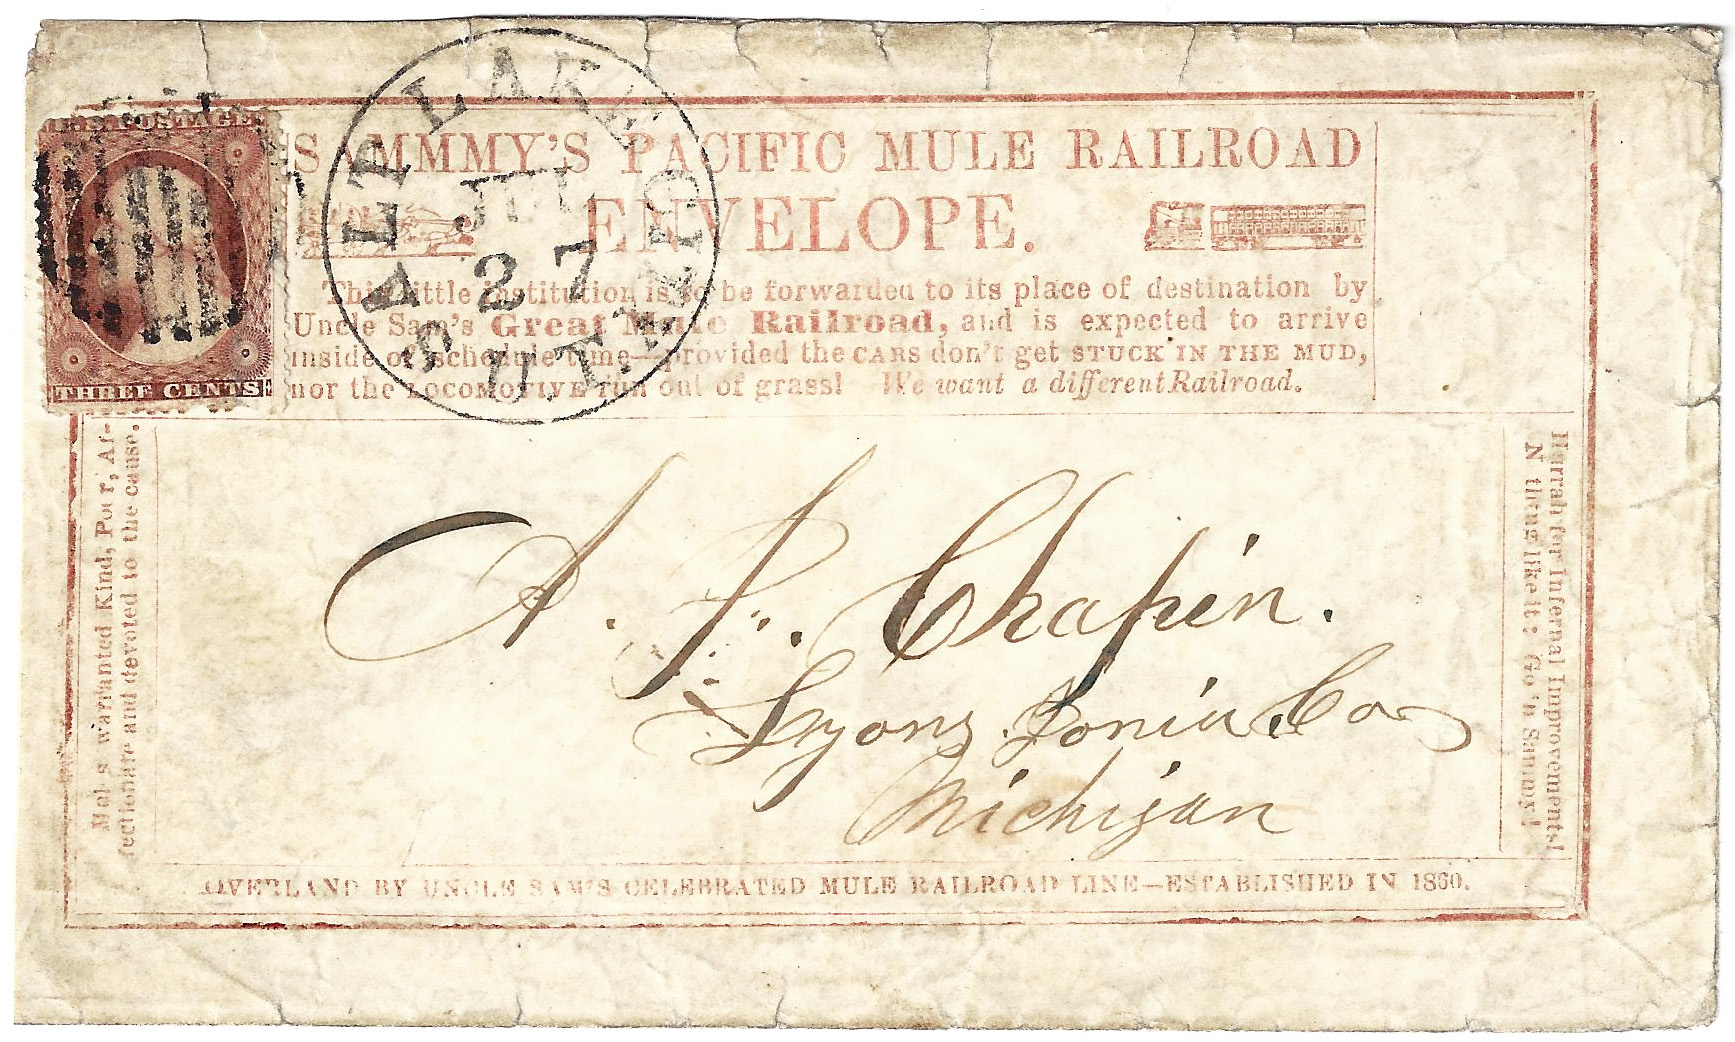 U.S. POSTAGE
THREE CENTS
SALT LAKE CITY
UT.
JUL
27
SAMMMY'S PACIFIC MULE RAILROAD
ENVELOPE.
This little institution is to be forwarded to its place of destination by
Uncle Sam's Great Mule Railroad, and is expected to arrive
inside of schedule time—provided the CARS don't get STUCK IN THE MUD,
nor the LOCOMOTIVE run out of grass! We want a different Railroad.
warranted Kind, Poor, Af-
fectionate and devoted to the cause.
A. Chapin.
Lyons. Ionia. Co
Michigan
Hurrah for Infernal Improvements!
N thing like it: Go 'n Sammy!
OVERLAND BY UNCLE SAM'S CELEBRATED MULE RAILROAD LINE—ESTABLISHED IN 1860.